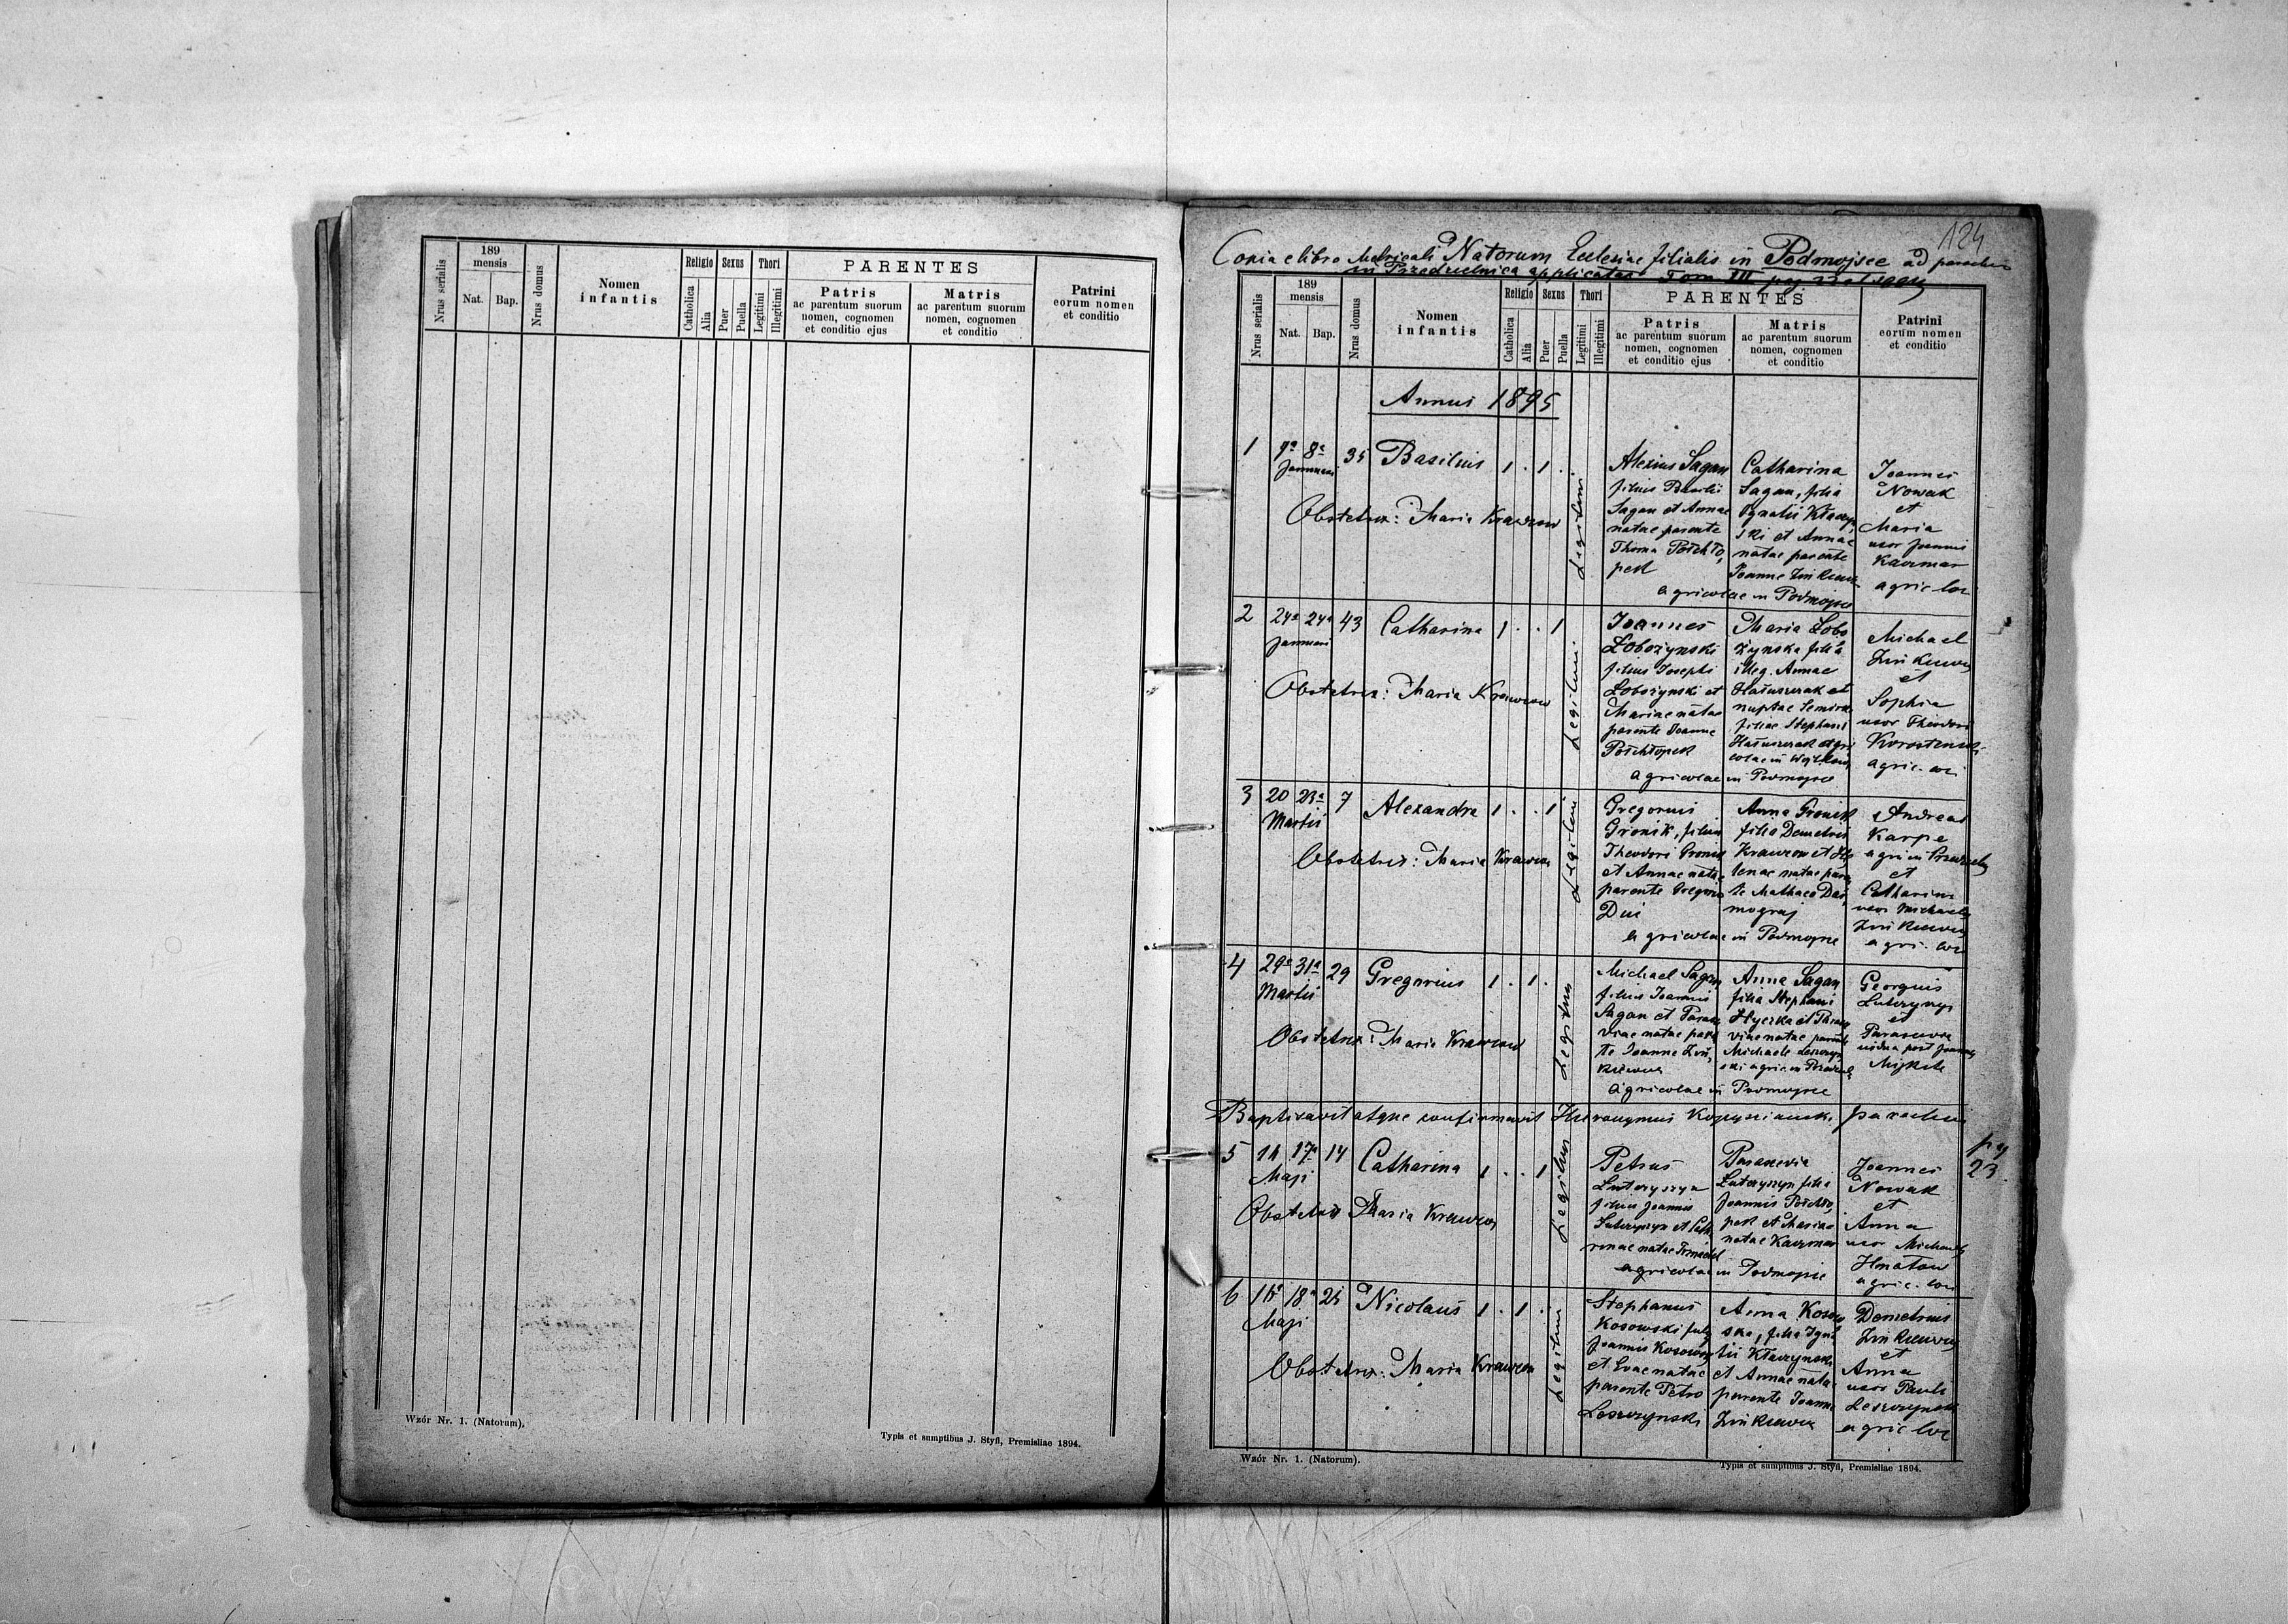 Nrus serialis
189
mensis
Nat.
Bap.
Nrus domus
Nomen
infantis
Religio
Catholica
Alia
Sexus
Puer
Puella
Thori
Legitimi
Illegitimi
PARENTES
Patris
ac parentum suorum
nomen, cognomen
et conditio ejus
Matris
ac parentum suorum
nomen, cognomen
et conditio
Patrini
eorum nomen
et conditio
Wzór Nr. 1. (Natorum).
Typis et sumptibus J. Styfi, Premisliae 1894.
124
Copia e libro Metricali Natorum Ecclesiae filialis in Podmojsce ad parochiam
in Przedzielnica applicatae Tom III pag
Nrus serialis
189
mensis
Nat.
Bap.
Nrus domus
Nomen
infantis
Religio
Catholica
Alia
Sexus
Puer
Puella
Thori
Legitimi
Illegitimi
PARENTES
Patris
ac parentum suorum
nomen, cognomen
et conditio ejus
Matris
ac parentum suorum
nomen, cognomen
et conditio
Patrini
eorum nomen
et conditio
Annus 1895
1
7a 8a
Januarii
35
Basilius
1 . 1 .
Legitimi
Obstetrix: Maria Krawcow
Alexius Sagan
filius Basilii
Sagan et Annae
natae parente
Thoma Półchło
pek
Catharina
Sagan, filia
Ignatii Kłaczyń
ski et Annae
natae parente
Joanne Zinkiewicz
agricolae in Podmojsce
Joannes
Nowak
et
Maria
uxor Joannis
Kaczmar
agric. loci
2
24a 24a
Januarii
43
Catharina
1 . . 1
Legitimi
Obstetrix: Maria Krawcow
Joannes
Łobożynski
filius Josephi
Łobożynski et
Mariae natae
parente Joanne
Półchłopek
Maria Łobo
żynska filia
illeg. Annae
Hałuszczak et
nuptae
filiae Stephani
Hałuszczak agri
colae in
agricolae in Podmojsce
Michael
Zinkiewicz
et
Sophia
uxor Theodori
agric. loci
3
20 23a
Martii
7
Alexandra
1 . . 1
Legitimi
Obstetrix: Maria Krawcow
Gregorius
Gronik, filius
Theodori Gronik
et Annae natae
parente Gregorio
Duc
Anna Gronik
filia Demetrii
Krawcow et He
lenae natae paren
te Mathaeo Dar
mograj
agricolae in Podmojsce
Andreas
Karpa
agri in
et
Catharina
uxor Michaelis
Zinkiewicz
agri. loci
4
29a 31a
Martii
29
Gregorius
1 . 1 .
Legitimi
Obstetrix: Maria Krawcow
Michael Sagan
filius Joannis
Sagan et Paras
viae natae paren
te Joanne Zin
kiewicz
Anna Sagan
filia Stephani
Hyczka et Paras
viae natae parente
Michaele Leszczyn
ski agric. in
agricolae in Podmojsce
Georgius
Luteryszyn
et
Parascevia
vidua post Joannem
Baptisavit atque confirmavit Hieronymus parochus
pag
23
5
14 17a
Maji
14
Catharina
1 . . 1
Legitimi
Obstetrix Maria Krawcow
Petrus
Luteryszyn
filius Joannis
Luteryszyn et Catha
rinae natae
Parascevia
Luteryszyn filia
Joannis Półchło
pek et Mariae
natae Kaczmar
agricolae in Podmojsce
Joannes
Nowak
et
Anna
uxor Michaelis
Hnatow
agric. loci
6
18a
Maji
25
Nicolaus
1 . 1 .
Legitimi
Obstetrix: Maria Krawcow
Stephanus
Kosowski filius
Joannis Kosowski
et Evae natae
parente Petro
Leszczynski
Anna Kosow
ska, filia Igna
tii Kłaczynski
et Annae natae
parente Joanne
Zinkiewicz
Demetrius
Zinkiewicz
et
Anna
uxor Pauli
Leszczynski
agric. loci
Wzór Nr. 1. (Natorum).
Typis et sumptibus J. Styfi, Premisliae 1894.